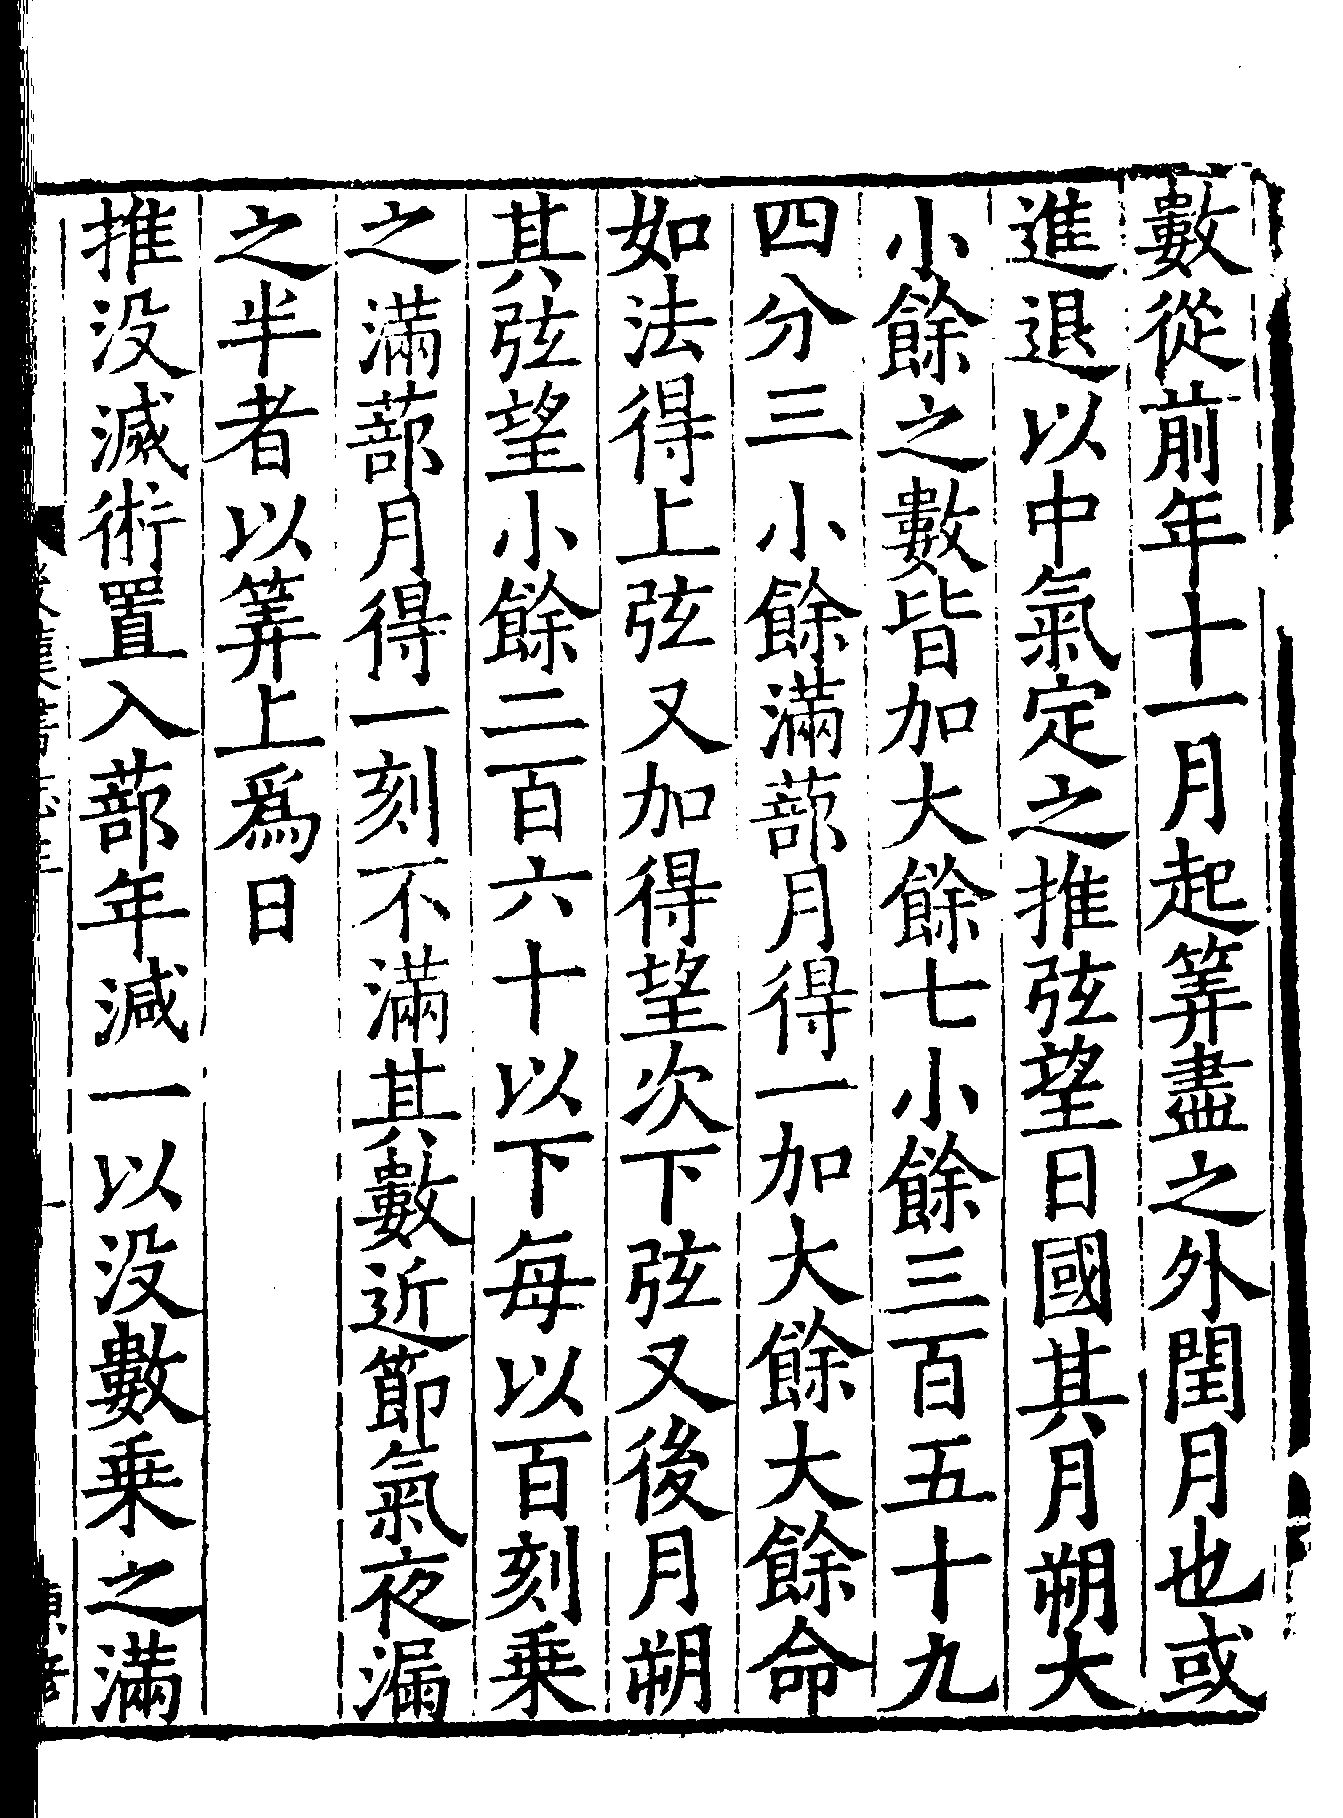 數從前年十一月起筭盡之外閏月也或
進退以中氣定之推弦望日國其月朔大
小餘之數皆加大餘七小餘三百五十九
四分三小餘滿蔀月得一加大餘大餘命
如法得上弦又加得望次下弦又後月朔
其弦望小餘二百六十以下每以百刻乗
之滿蔀月得一刻不滿其數近節氣夜漏
之半者以筭上爲日
推没滅術置入蔀年減一以没數乗之滿